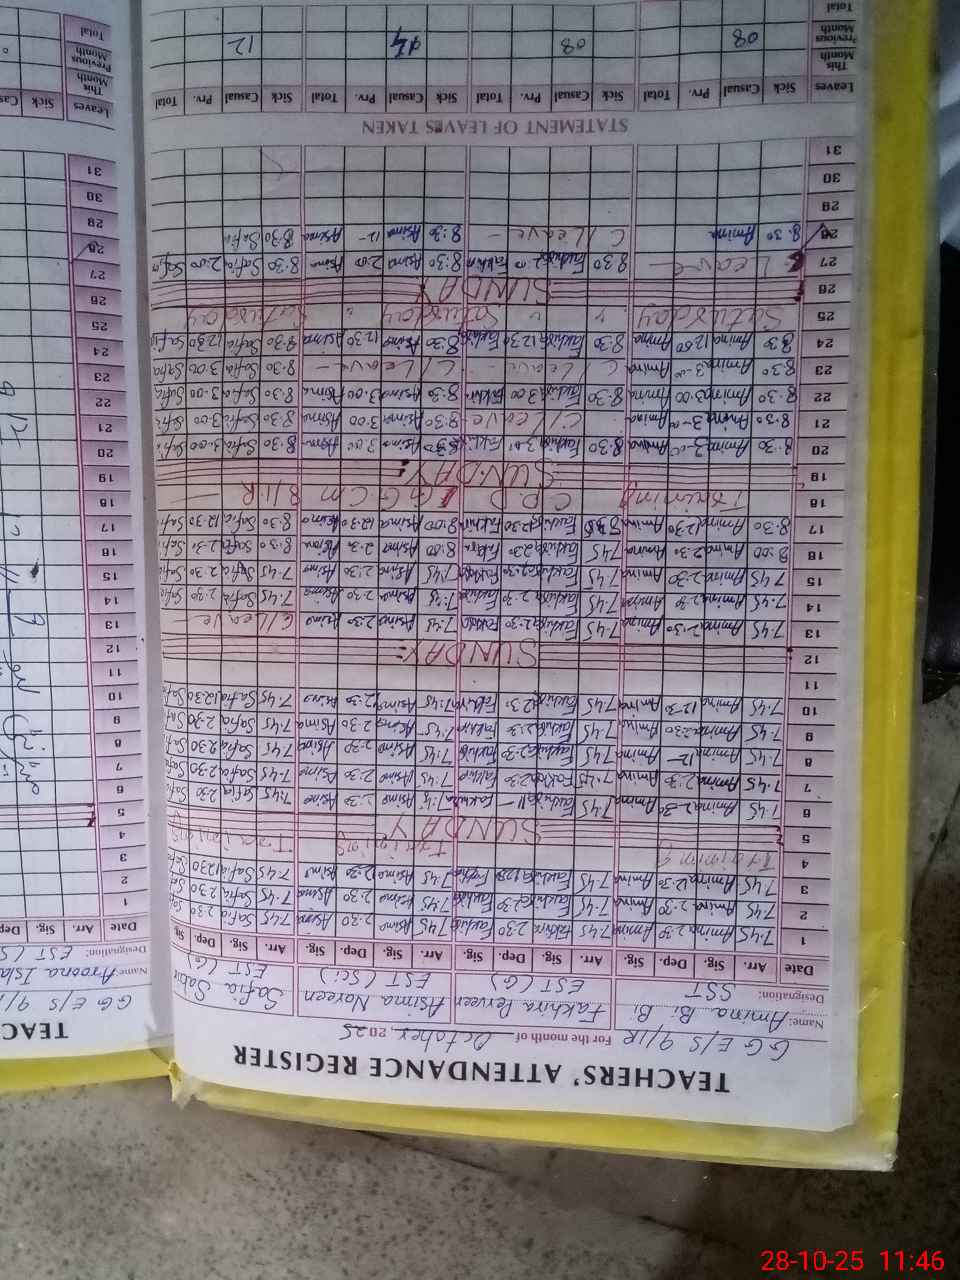 TEACHERS' ATTENDANCE REGISTER
GGE/S 9/11R For the month of October, 2025
Name: Amina Bi Bi Fakhira Perveen Asima Nasreen Safia
Designation: SST EST (G) EST (Sci) EST (G)
Date Arr. Sig. Dep. Sig. Arr. Sig. Dep. Sig. Arr. Sig. Dep. Sig. Arr. Sig. Dep. Sig.
1 7.45 Amina 2.30 Amina 7.45 Fakhira 2.30 Fakhira 7.45 Asima 2.30 Asima 7.45 Safia 2.30
2 7.45 Amina 2.30 Amina 7.45 Fakhira 2.30 Fakhira 7.45 Asima 2.30 Asima 7.45 Safia 2.30
3 7.45 Amina 12.30 Amina 7.45 Fakhira 12.30 Fakhira 7.45 Asima 12.30 Asima 7.45 Safia 12.30
4 Training Training Training
5 SUNDAY
6 7.45 Amina 2.30 Amina 7.45 Fakhira 11 Fakhira 7.45 Asima 2.30 Asima 7.45 Safia 2.30 Safia
7 7.45 Amina 2.30 Amina 7.45 Fakhira 2.30 Fakhira 7.45 Asima 2.30 Asima 7.45 Safia 2.30 Safia
8 7.45 Amina 12 Amina 7.45 Fakhira 2.30 Fakhira 7.45 Asima 2.30 Asima 7.45 Safia 2.30 Safia
9 7.45 Amina 2.30 Amina 7.45 Fakhira 2.30 Fakhira 7.45 Asima 2.30 Asima 7.45 Safia 2.30 Safia
10 7.45 Amina 12.30 Amina 7.45 Fakhira 12.30 Fakhira 7.45 Asima 12.30 Asima 7.45 Safia 12.30 Safia
11
12 SUNDAY
13 7.45 Amina 2.30 Amina 7.45 Fakhira 2.30 Fakhira 7.45 Asima 2.30 Asima C/Leave
14 7.45 Amina 2.30 Amina 7.45 Fakhira 2.30 Fakhira 7.45 Asima 2.30 Asima 7.45 Safia 2.30 Safia
15 7.45 Amina 2.30 Amina 7.45 Fakhira 2.30 Fakhira 7.45 Asima 2.30 Asima 7.45 Safia 2.30 Safia
16 8:00 Amina 2.30 Amina 7.45 Fakhira 2.30 Fakhira 8:00 Asima 2.30 Asima 8.30 Safia 2.30 Safia
17 8.30 Amina 12.30 Amina Fakhira 12.30 Fakhira 8:00 Asima 12.30 Asima 8.30 Safia 12.30 Safia
18 Training C.P.D GGCM 8/11.R
19 SUNDAY
20 8.30 Amina 3.00 Amina 8.30 Fakhira 3.00 Fakhira 8.30 Asima 3.00 Asima 8.30 Safia 3.00 Safia
21 8.30 Amina 3.00 Amina C/Leave 8.30 Asima 3.00 Asima 8.30 Safia 3.00 Safia
22 8.30 Amina 3.00 Amina 8.30 Fakhira 3.00 Fakhira 8.30 Asima 3.00 Asima 8.30 Safia 3.00 Safia
23 8.30 Amina 3.00 Amina C/Leave C/Leave 8.30 Safia 3.00 Safia
24 8.30 Amina 12.30 Amina 8.30 Fakhira 12.30 Fakhira 8.30 Asima 12.30 Asima 8.30 Safia 12.30 Safia
25 Saturday Saturday Saturday
26 SUNDAY
27 C Leave 8.30 Fakhira 2.00 Fakhira 8.30 Asima 2.00 Asima 8.30 Safia 2.00 Safia
28 8.30 Amina C/Leave 8:30 Asima 12 Asima 8.30 Safia
29
30
31
STATEMENT OF LEAVES TAKEN
Leaves Sick Casual Prv. Total Sick Casual Prv. Total Sick Casual Prv. Total Sick Casual Prv. Total
This Month
Previous Month 08 08 12
Total
TEAC
GGE/S 9/1
Name: Aroona Isla
Designation: EST (S
Date Arr. Sig. Dep
1
2
3
4
5
6
7
8
9
10
11
12
13
14
15
16
17
18
19
20
21
22
23
24
25
26
27
28
29
30
31
Leaves Sick Cas
This Month
Previous Month
Total
28-10-25 11:46